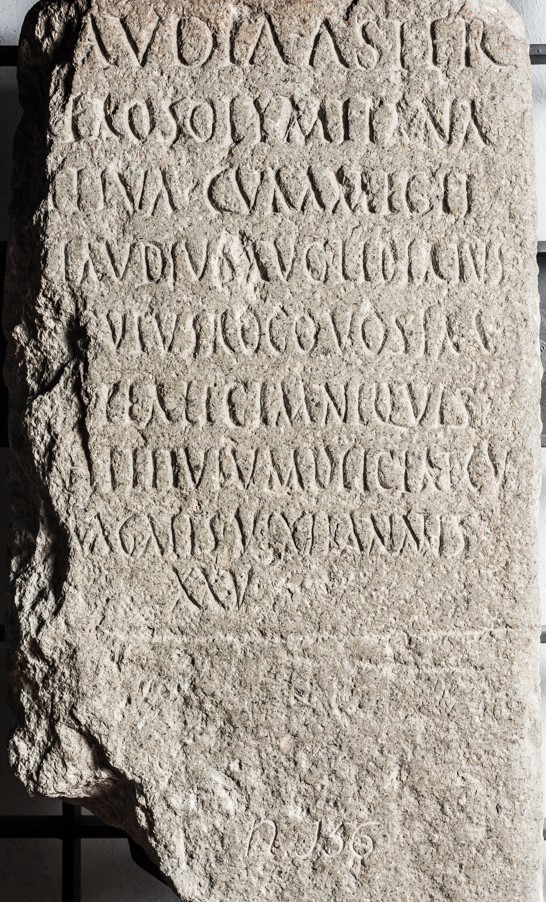 AVDIA ASTER
EROSOLYMITANA
TIVA CVRAM EGIT
LAVDIVS AVG LIBERTVS
ROGO VOS FAC
LICIM NE QVIS
TITVLVM DEICIAT CV
AGATIS VIXIT ANNIS
XXV
N. 136